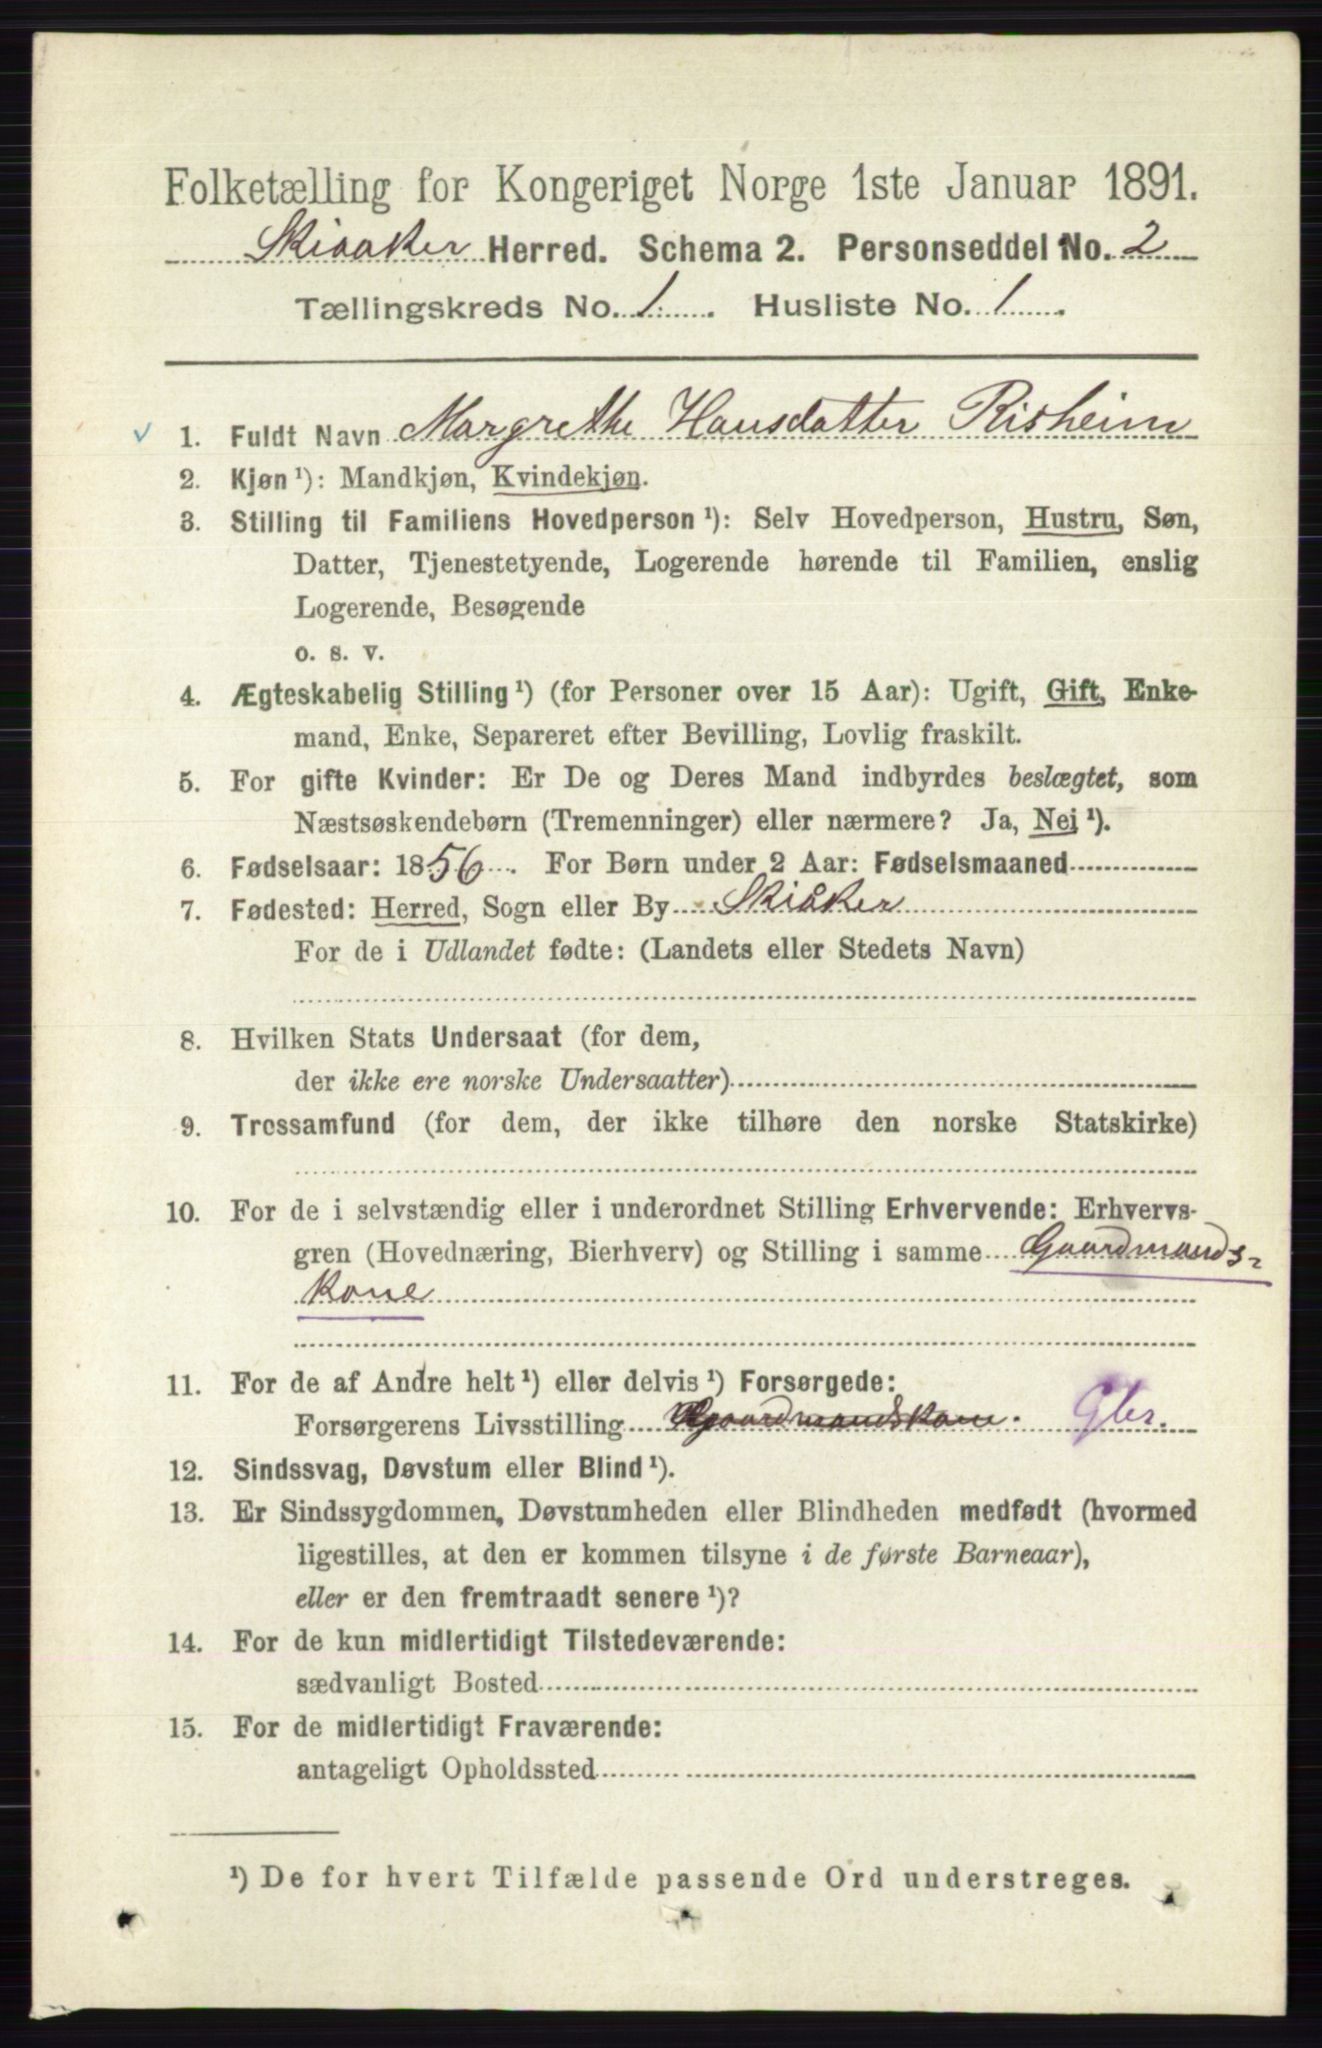 Folketælling for Kongeriget Norge 1ste Januar 1891.
Skiaaker Herred. Schema 2. Personseddel No. 2
Tællingskreds No. 1. Husliste No. 1.
1. Fuldt Navn Margrethe Hansdatter Risheim
2. Kjøn¹): Mandkjøn, Kvindekjøn.
3. Stilling til Familiens Hovedperson¹): Selv Hovedperson, Hustru, Søn,
Datter, Tjenestetyende, Logerende hørende til Familien, enslig
Logerende, Besøgende
o. s. v.
4. Ægteskabelig Stilling¹) (for Personer over 15 Aar): Ugift, Gift, Enke-
mand, Enke, Separeret efter Bevilling, Lovlig fraskilt.
5. For gifte Kvinder: Er De og Deres Mand indbyrdes beslægtet, som
Næstsøskendebørn (Tremenninger) eller nærmere? Ja, Nei¹).
6. Fødselsaar: 1856. For Børn under 2 Aar: Fødselsmaaned
7. Fødested: Herred, Sogn eller By Skiåker
For de i Udlandet fødte: (Landets eller Stedets Navn)
8. Hvilken Stats Undersaat (for dem,
der ikke ere norske Undersaatter)
9. Trossamfund (for dem, der ikke tilhøre den norske Statskirke)
10. For de i selvstændig eller i underordnet Stilling Erhvervende: Erhvervs-
gren (Hovednæring, Bierhverv) og Stilling i samme Gaardmands-
kone
11. For de af Andre helt¹) eller delvis¹) Forsørgede:
Forsørgerens Livsstilling Gaardmandskone. Gbr.
12. Sindssvag, Døvstum eller Blind¹).
13. Er Sindssygdommen, Døvstumheden eller Blindheden medfødt (hvormed
ligestilles, at den er kommen tilsyne i de første Barneaar),
eller er den fremtraadt senere¹)?
14. For de kun midlertidigt Tilstedeværende:
sædvanligt Bosted
15. For de midlertidigt Fraværende:
antageligt Opholdssted
¹) De for hvert Tilfælde passende Ord understreges.